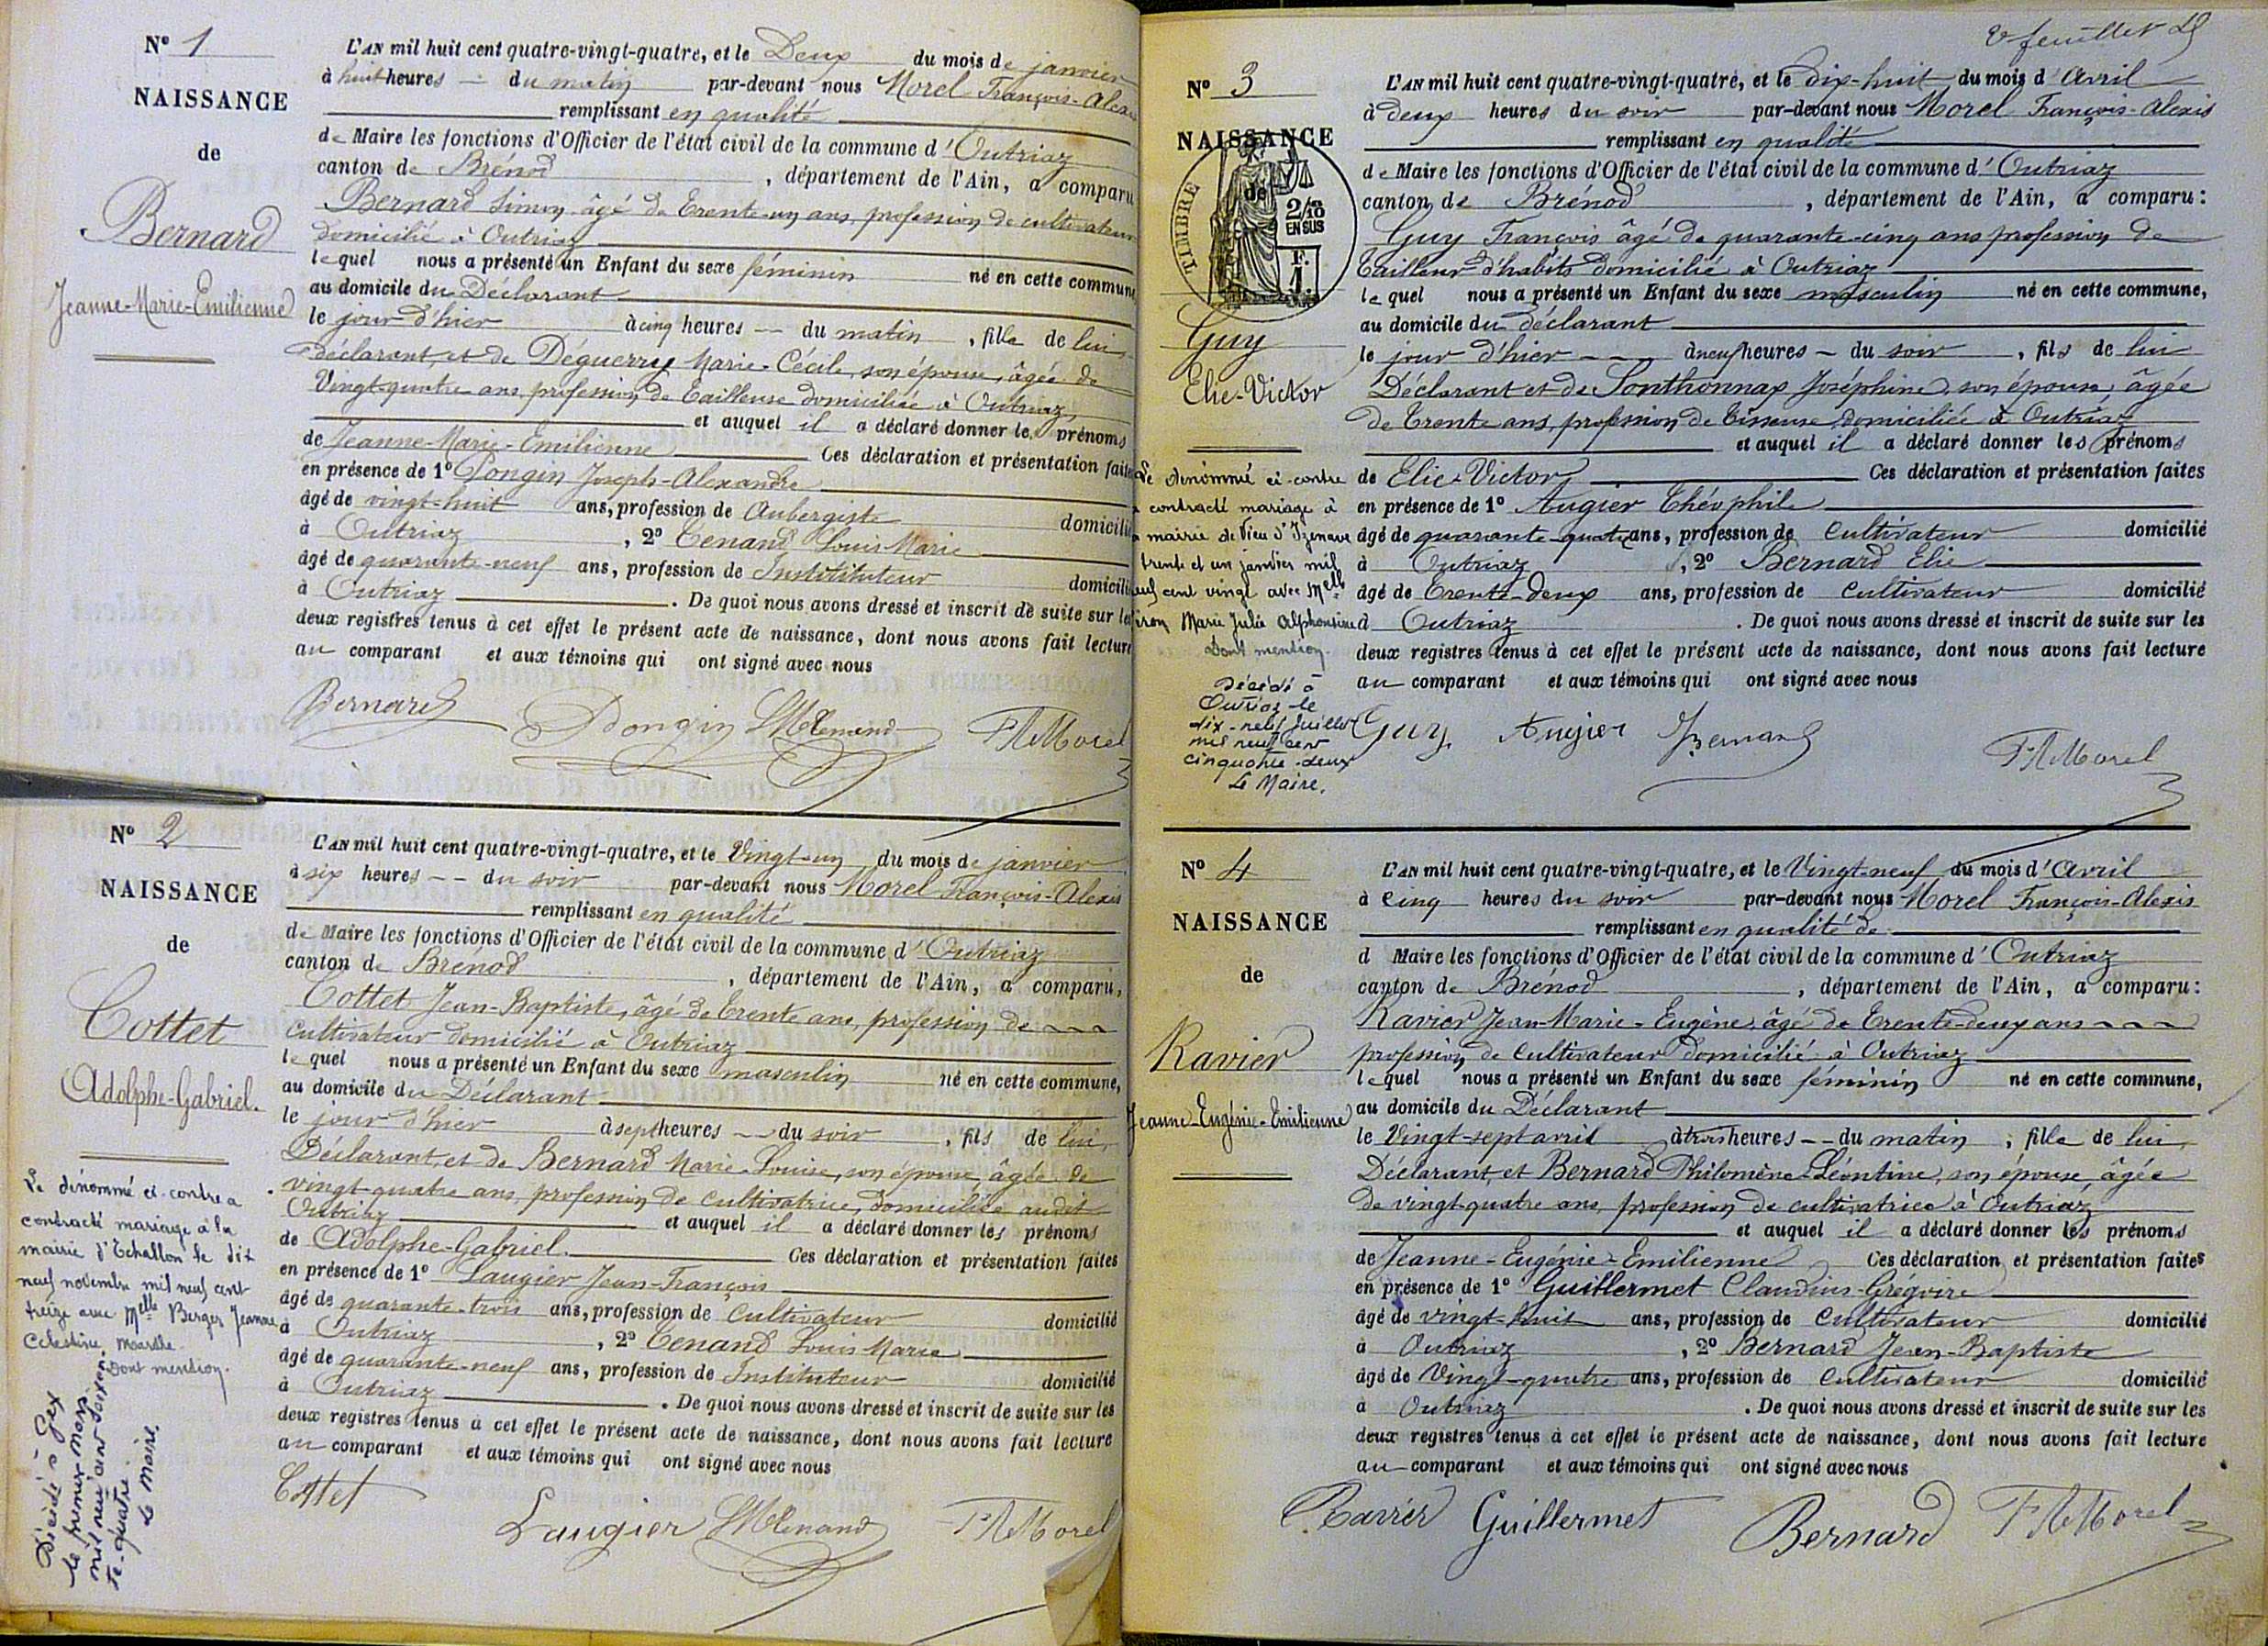 N° 1
NAISSANCE
de
Bernard
Jeanne-Marie-Emilienne
L'AN mil huit cent quatre-vingt-quatre, et le Deux du mois de janvier
à huit heures du matin par-devant nous Morel François-Alexis
remplissant en qualité
de Maire les fonctions d'Officier de l'état civil de la commune d'Outriaz
canton de Brénod, département de l'Ain, a comparu
Bernard Simon âgé de trente-un ans, profession de cultivateur
domicilié à Outriaz
lequel nous a présenté un Enfant du sexe féminin né en cette commune,
au domicile du Déclarant
le jour d'hier à cinq heures du matin, fille de lui
déclarant, et de Déguerry Marie-Cécile, son épouse, âgée de
Vingt-quatre ans, profession de tailleuse domiciliée à Outriaz,
et auquel il a déclaré donner les prénoms
de Jeanne-Marie-Emilienne Ces déclaration et présentation faites
en présence de 1° Dongin Joseph-Alexandre
âgé de vingt-huit ans, profession de Aubergiste domicilié
à Outriaz, 2° Tenand Louis Marie
âgé de quarante-neuf ans, profession de Instituteur domicilié
à Outriaz. De quoi nous avons dressé et inscrit de suite sur les
deux registres tenus à cet effet le présent acte de naissance, dont nous avons fait lecture
au comparant et aux témoins qui ont signé avec nous
Bernard Dongin LMTenand FAMorel
N° 2
NAISSANCE
de
Cottet
Adolphe-Gabriel.
Le dénommé ci-contre a
contracté mariage à la
mairie d'Echallon le dix
neuf novembre mil neuf cent
treize avec Melle Berger Jeanne
Célestine, Marthe.
Dont mention.
Décédé à Gex
le premier mars
mil neuf cent soixan
te-quatre.
Le Maire.
L'AN mil huit cent quatre-vingt-quatre, et le Vingt-un du mois de janvier
à six heures du soir par-devant nous Morel François-Alexis
remplissant en qualité
de Maire les fonctions d'Officier de l'état civil de la commune d'Outriaz
canton de Brénod, département de l'Ain, a comparu,
Cottet Jean-Baptiste, âgé de trente ans, profession de
cultivateur domicilié à Outriaz
lequel nous a présenté un Enfant du sexe masculin né en cette commune,
au domicile du Déclarant
le jour d'hier à sept heures du soir, fils de lui,
Déclarant, et de Bernard Marie-Louise, son épouse, âgée de
vingt-quatre ans, profession de cultivatrice, domiciliée audit
Outriaz et auquel il a déclaré donner les prénoms
de Adolphe-Gabriel. Ces déclaration et présentation faites
en présence de 1° Laugier Jean-François
âgé de quarante-trois ans, profession de Cultivateur domicilié
à Outriaz, 2° Tenand Louis Marie
âgé de quarante-neuf ans, profession de Instituteur domicilié
à Outriaz. De quoi nous avons dressé et inscrit de suite sur les
deux registres tenus à cet effet le présent acte de naissance, dont nous avons fait lecture
au comparant et aux témoins qui ont signé avec nous
Cottet Laugier LMTenand FAMorel
feuillet
N° 3
NAISSANCE
de
TIMBRE
2/10 EN SUS
F. 1.
Guy
Elie-Victor
Le dénommé ci-contre
a contracté mariage à
la mairie de Vieu d'Izenave
trente et un janvier mil
neuf cent vingt avec Melle
Marie Julie Alphonsine
Dont mention.
Décédé à
Outriaz le
dix-neuf Juillet
mil neuf cent
cinquante-deux
Le Maire.
L'AN mil huit cent quatre-vingt-quatre, et le dix-huit du mois d'Avril
à deux heures du soir par-devant nous Morel François-Alexis
remplissant en qualité
de Maire les fonctions d'Officier de l'état civil de la commune d'Outriaz
canton de Brénod, département de l'Ain, a comparu:
Guy François âgé de quarante-cinq ans profession de
tailleur d'habits domicilié à Outriaz
lequel nous a présenté un Enfant du sexe masculin né en cette commune,
au domicile du déclarant
le jour d'hier à neuf heures du soir, fils de lui
Déclarant et de Sonthonnax Joséphine, son épouse, âgée
de trente ans, profession de tisseuse domiciliée à Outriaz
et auquel il a déclaré donner les prénoms
de Elie-Victor Ces déclaration et présentation faites
en présence de 1° Augier Théophile
âgé de quarante-quatre ans, profession de Cultivateur domicilié
à Outriaz, 2° Bernard Elie
âgé de trente-deux ans, profession de Cultivateur domicilié
à Outriaz. De quoi nous avons dressé et inscrit de suite sur les
deux registres tenus à cet effet le présent acte de naissance, dont nous avons fait lecture
au comparant et aux témoins qui ont signé avec nous
Guy Augier Bernard FAMorel
N° 4
NAISSANCE
de
Ravier
Jeanne-Eugénie-Emilienne
L'AN mil huit cent quatre-vingt-quatre, et le Vingt-neuf du mois d'Avril
à cinq heures du soir par-devant nous Morel François-Alexis
remplissant en qualité de
d Maire les fonctions d'Officier de l'état civil de la commune d'Outriaz
canton de Brénod, département de l'Ain, a comparu:
Ravier Jean-Marie-Eugène, âgé de trente-deux ans
profession de cultivateur domicilié à Outriaz
lequel nous a présenté un Enfant du sexe féminin né en cette commune,
au domicile du Déclarant
le Vingt-sept avril à trois heures du matin, fille de lui,
Déclarant, et Bernard Philomène-Léontine, son épouse, âgée
de vingt-quatre ans, profession de cultivatrice à Outriaz
et auquel il a déclaré donner les prénoms
de Jeanne-Eugénie-Emilienne Ces déclaration et présentation faites
en présence de 1° Guillermet Claudius-Grégoire
âgé de vingt-huit ans, profession de Cultivateur domicilié
à Outriaz, 2° Bernard Jean-Baptiste
âgé de Vingt-quatre ans, profession de Cultivateur domicilié
à Outriaz. De quoi nous avons dressé et inscrit de suite sur les
deux registres tenus à cet effet le présent acte de naissance, dont nous avons fait lecture
au comparant et aux témoins qui ont signé avec nous
Ravier Guillermet Bernard FAMorel